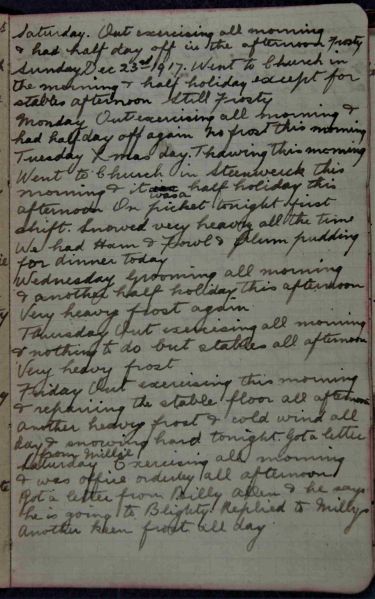 Saturday. Out exercising all morning
& had half day off in the afternoon Frosty
Sunday Dec 23rd 1917. Went to Church in
the morning & half holiday except for
stables afternoon Still Frosty
Monday Out exercising all morning &
had half day off again no frost this morning
Tuesday Xmas day. Thawing this morning
Went to Church in Steenwerck this
morning & it was a half holiday this
afternoon On picket tonight first
shift. Snowed very heavy all the time
We had Ham & Fowl & Plum pudding
for dinner today
Wednesday Grooming all morning
& another half holiday this afternoon
Very heavy frost again
Thursday Out exercising all morning
& nothing to do but stables all afternoon
Very heavy frost
Friday Out exercising this morning
& repairing the stable floor all afternoon
Another heavy frost & cold wind all
day & snowing hard tonight Got a letter
from Millie
Saturday Exercising all morning
& was office orderly all afternoon
Got a letter from Billy Allen & he says
he is going to Blighty. Replied to Millys
Another keen frost all day